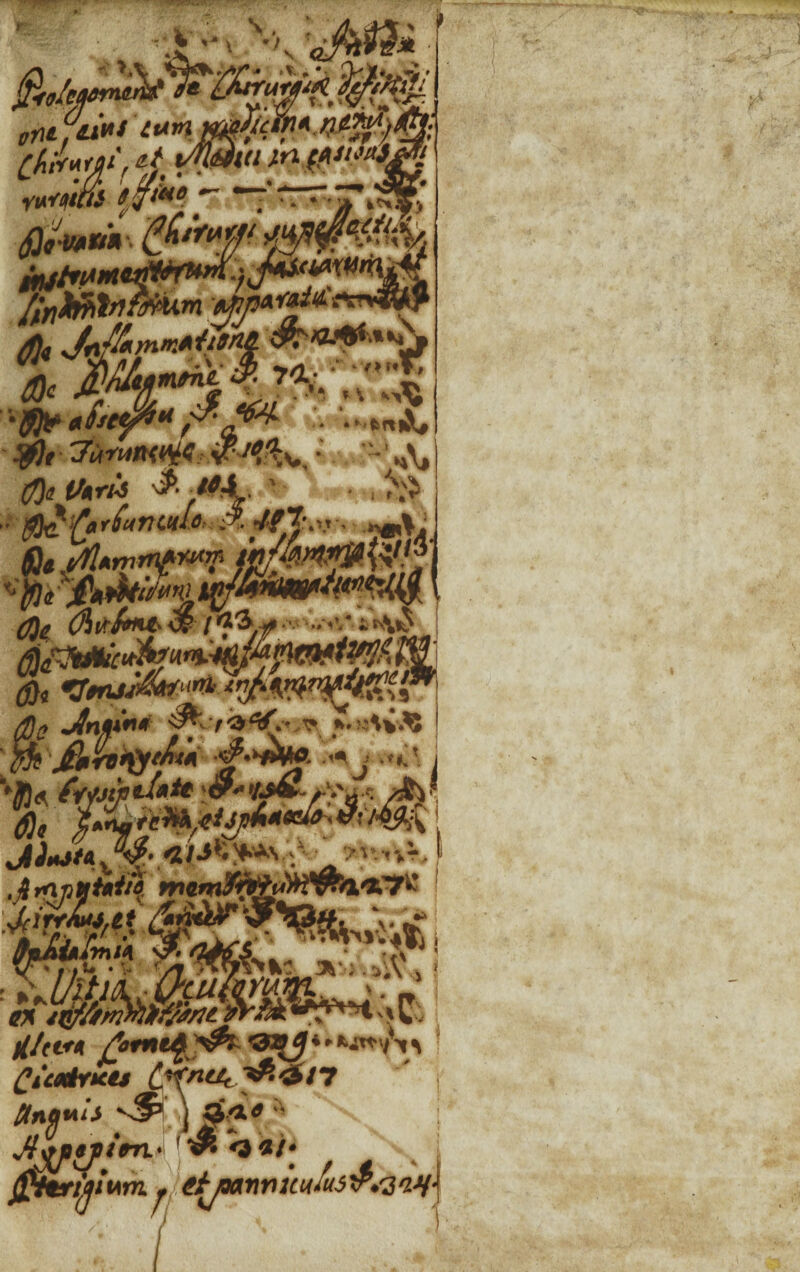 Index
Prolegomena de Chirurgiæ definiti
one, eius cum medicina
Chirurgi, et Medici in casibus chi
rurgicis officio
De varia Chirurgi supellectili,
instrumentorum, fasciarum, et
linamentorum apparatu
De Inflammatione P.
De Phlegmone P. 72
De abscessu P. 64
De Furunculo P. 102
De Varis P. 105
De Carbunculo P. 107
De Mammarum inflammat 113
De Parotidum inflammatione 119
De Bubone P 123
De Testiculorum inflammatione
De Tonsillarum inflammatione
De Angina P.
De Paronychia P. 140
De Erysipelate P.
De Gangrena, et sphacelo P. 169
Adusta P. 215
Amputatio membrorum P. 227
Scirrhus, et Cancer P 234
Ophtalmia P. 265
Vitia Oculorum
ex inflammatione
Ulcera Corneæ P.
Cicatrices Corneæ P. 317
Unguis P 320
Hypopion P. 321
Pterigium, et panniculus P. 324